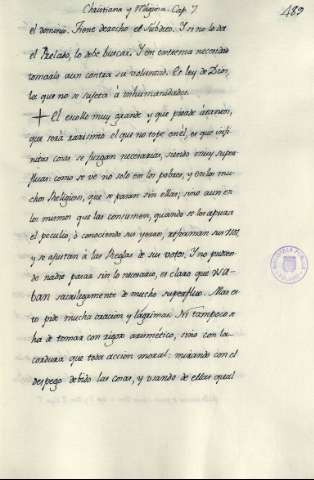 Christiana y Religiosa. Cap. 7 489
el dominio. Tiene derecho el Subdito. Y si no lo da
el Prelado, lo debe buscar. Y en extrema necesidad
tomarlo aun contra su voluntad. Es ley de Dios,
la que no se sujeta à inhumanidades.
+ El escollo muy grande y que puede
que serà rarisimo el que no tope en èl, es que infi-
nitas cosas se juzgan necesarias, siendo muy super-
fluas: como se ve no solo en los pobres, y en las mu-
chas Religiones, que se pasan sin ellas; sino aun en
los mismos que las consumen, quando se les apura
el peculio, ò conociendo su yerro, reforman sus
y se ajustan à las Reglas de sus votos. Y no pudien-
do nadie pasar sin lo necesario, es claro que usa-
ban sacrilegamente de mucho superfluo. Mas es-
to pide mucha oracion y lagrimas. Ni tampoco se
ha de tomar con rigor arismetico, sino con la
cordura que toda accion moral: mirando con el
despego debido las cosas, y usando de ellas qual